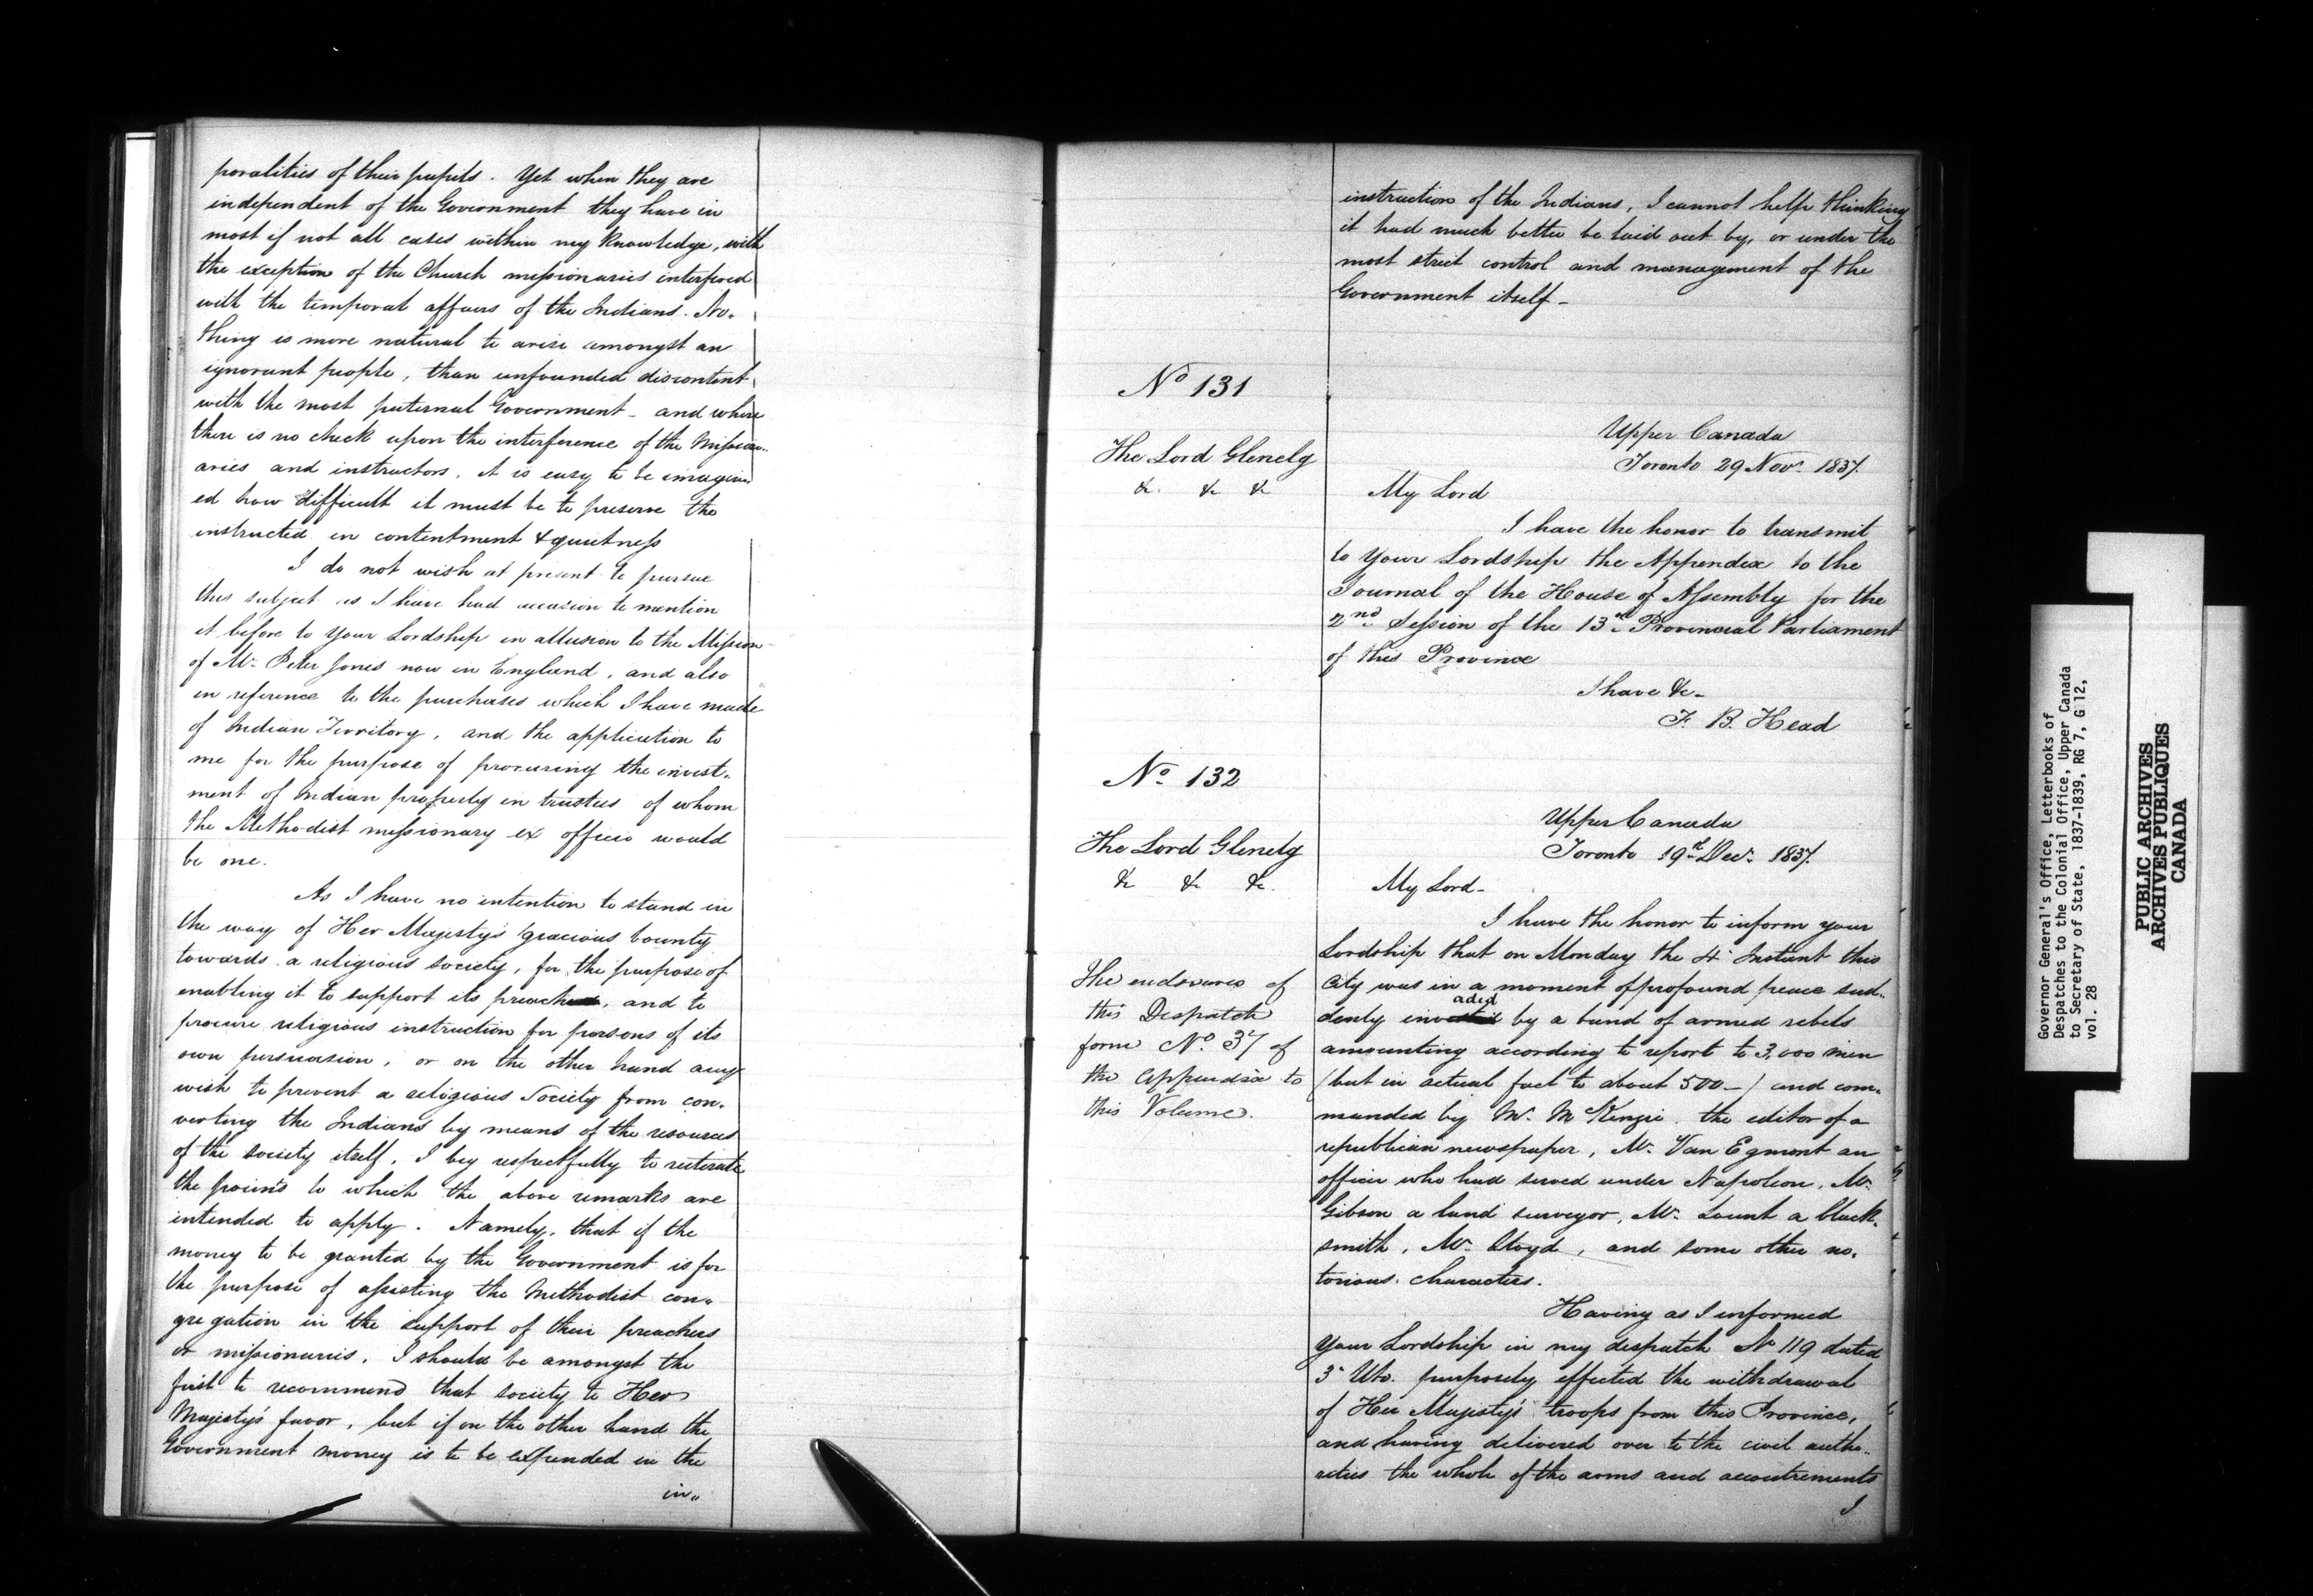 poralities of their pupils. Yet when they are
independent of the Government they have in
most if not all cases within my knowledge, with
the exception of the Church missionaries interfered
with the temporal affairs of the Indians. No-
thing is more natural to arise amongst an
ignorant people, than unfounded discontent
with the most paternal Government - and where
there is no check upon the interference of the Mission-
aries and instructors, it is easy to be imagin-
ed how difficult it must be to preserve the
instructed in contentment & quietness
I do not wish at present to pursue
this subject as I have had occasion to mention
it before to Your Lordship in allusion to the Mission
of Mr. Peter Jones now in England, and also
in reference to the purchases which I have made
of Indian Territory, and the application to
me for the purpose of procuring the invest-
ment of Indian property in trustees of whom
the Methodist missionary ex officio would
be one.
As I have no intention to stand in
the way of Her Majesty's gracious bounty
towards a religious society, for the purpose of
enabling it to support its preachers, and to
procure religious instruction for persons of its
own persuasion, or on the other hand any
wish to prevent a religious Society from con-
verting the Indians by means of the resources
of the society itself, I beg respectfully to reiterate
the points to which the above remarks are
intended to apply. Namely, that if the
money to be granted by the Government is for
the purpose of assisting the Methodist con-
gregation in the support of their preachers
or missionaries, I should be amongst the
first to recommend that society to Her
Majesty's favor, but if on the other hand the
Government money is to be expended in the
in-
instruction of the Indians, I cannot help thinking
it had much better be laid out by, or under the
most strict control and management of the
Government itself -
No 131
The Lord Glenelg
&c. &c &c
Upper Canada
Toronto 29 Novr. 1837.
My Lord
I have the honor to transmit
to Your Lordship the Appendix to the
Journal of the House of Assembly for the
2nd Session of the 13th Provincial Parliament
of this Province
I have &c-
F. B. Head
No. 132
The Lord Glenelg
&c &c &c.
Upper Canada
Toronto 19th Decr. 1837.
My Lord-
The enclosures of
this Despatch
form No. 37 of
the Appendix to
this Volume.
I have the honor to inform your
Lordship that on Monday the 4th Instant this
City was in a moment of profound peace sud-
aded
denly inv by a band of armed rebels
amounting according to report to 3,000 men
(but in actual fact to about 500-) and com-
manded by Mr. McKenzie the editor of a
republican newspaper, Mr. Van Egmont an
officer who had served under Napoleon, Mr.
Gibson a land surveyor, Mr. Lount a black-
smith, Mr. Lloyd, and some other no-
torious characters.
Having as I informed
Your Lordship in my despatch No 119 dated
3d Ulto. purposely effected the withdrawal
of Her Majesty's troops from this Province,
and having delivered over to the civil autho-
rities the whole of the arms and accoutrements
I
Governor General's Office, Letterbooks of
Despatches to the Colonial Office, Upper Canada
to Secretary of State, 1837-1839, RG 7, G 12,
vol. 28
PUBLIC ARCHIVES
ARCHIVES PUBLIQUES
CANADA